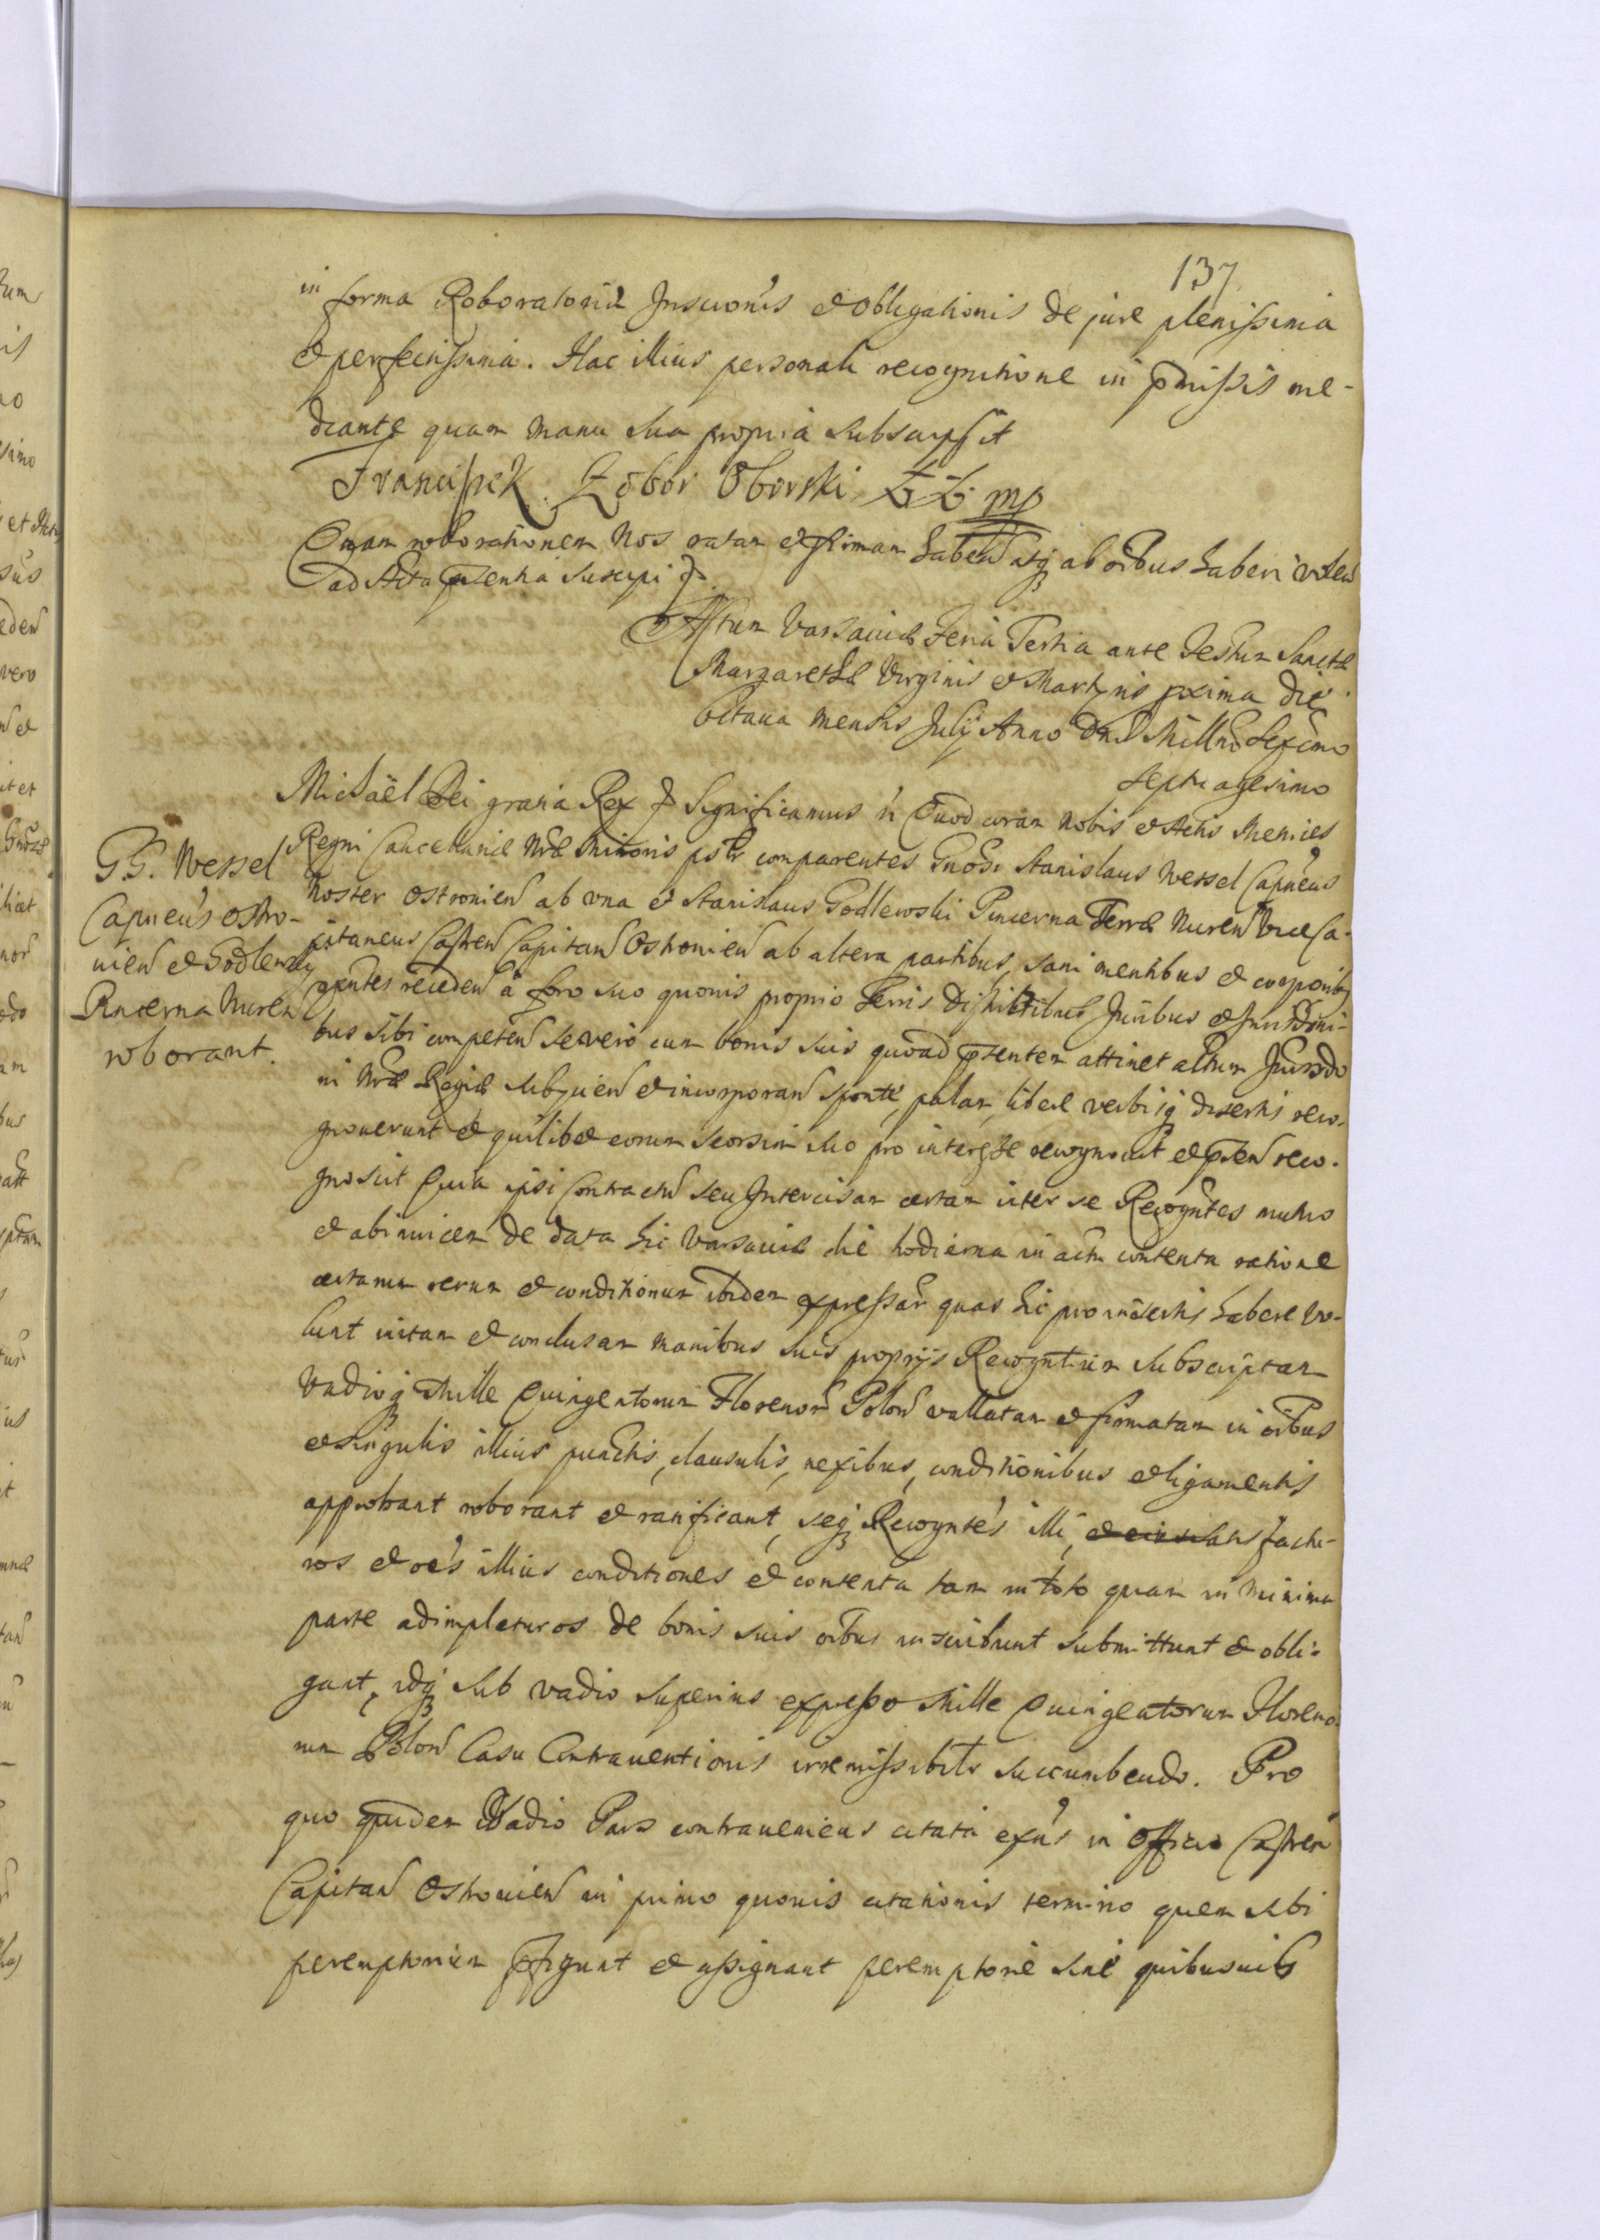 137
in forma Roboratoria Inscriōnis et Obligationis de jure plenissima
et perfectissima. Hac illius personali recognitione in p̄missis me-
diante quam manu sua propria subscripsit
Franciszek Zobor Oborski mp
Quam roborationem Nos ratam et firmam haben̄ atq̨ ab oībus haberi volen̄
ad Acta p̄sentia suscepi
Actum Varsaviæ Feria Tertia ante Festum Sanctæ
Margarethæ Virginis et Martyris pxima die
Octava mensis Julij Anno Dnī Millm̄o Sexēmo
septuagesimo
GG. Wessel
Capneūs Ostro-
nien̄ et Godlewsky
Pincerna Nuren̄
roborant.
Michaël Dei gratia Rex Significamus Quod coram Nobis et Actis Metrices
Regni Cancellariæ Nr̄æ Minoris psl̄r comparentes Gnōsi Stanislaus Wessel Capneūs
Noster Ostronien̄ ab una et Stanislaus Godlewski Pincerna Terræ Nuren̄ Vice Ca-
pitaneus Castren̄ Capitan̄ Ostronien̄ ab altera partibus, sani mentibus et corporib₉
exn̄tes receden̄ â foro suo quovis proprio Terris Districtibus Juribus et Jurisdōni-
bus sibi competen̄ se vero cum bonis suis quoad p̄sentem attinet actum Jurisdō
ni Nr̄æ Regiæ subÿcien̄ et incorporan̄ sponte, palam, libere verbisq̨ disertis reco-
gnoverunt et quilibet eorum seorsim suo pro interesse recognovit et p̄sen̄ reco-
gnoscit Quia ipsi Contractū seu Intercisam certam inter se Recogn̄tes mutuo
et ab invicem de data hic Varsaviæ die hodierna in actu contenta ratione
certarum rerum et conditionum ibidem expressar̄ quas hic pro insertis habere vo-
lunt initam et conclusam manibus suis proprÿs Recogn̄tium subscriptam
Vadioq̨ Mille Quingentorum Florenor̄ Polon̄ vallatam et firmatam in oībus
et singulis illius punctis, clausulis, nexibus, conditionibus et ligamentis
approbant roborant et ratificant, seq̨ Recogn̄tes illi, satisfactu-
ros et oēs illius conditiones et contenta tam in toto quam in minima
parte adimpleturos de bonis suis oībus inscribunt submittunt et obli-
gant, idq̨ sub vadio superius expresso Mille Quingentorum Floreno-
rum Polon̄ Casu Contraventionis irremissibilr̄ succumbendo. Pro
quo quidem Vadio Pars contraveniens citata exn̄s in Officio Castren̄
Capitan̄ Ostronien̄ in primo quovis citationis termino quem sibi
peremptorium p̄figunt et assignant peremptorie sine quibusvis